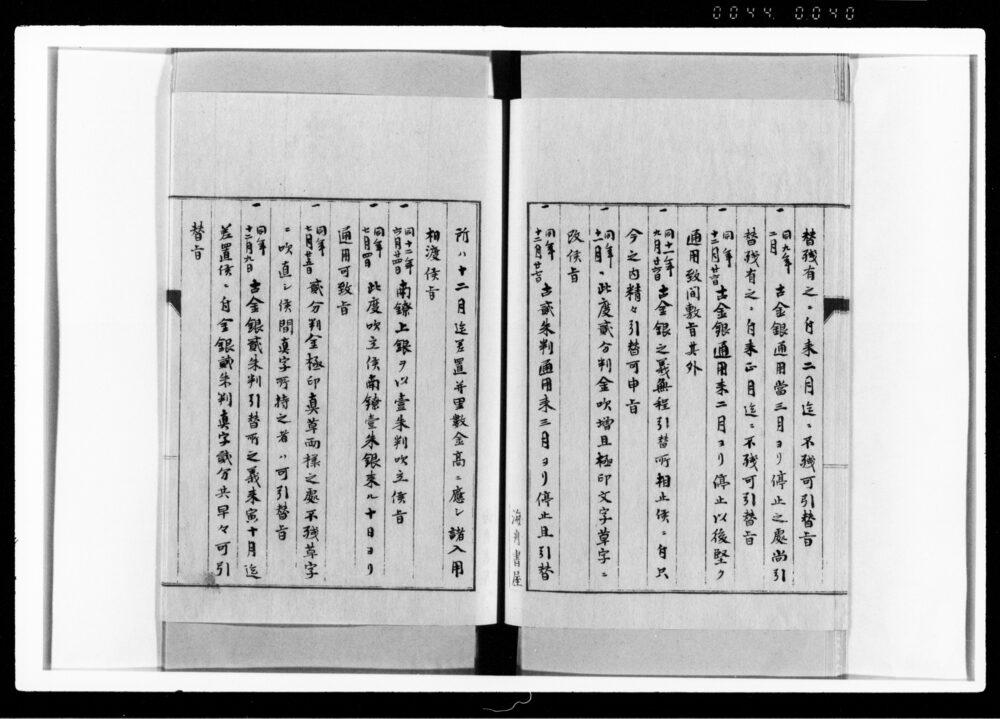 0044 0040
替残有之ニ付来二月迄ニ不残可引替旨
一 同九年二月 古金銀通用當三月ヨリ停止之處尚引
替残有之ニ付来正月迄ニ不残可引替旨
一 同年十二月廿 古金銀通用来二月ヨリ停止以後堅ク
通用致間敷旨其外
一 同十一年九月廿 古金銀之義無程引替所相止候ニ付只
今之内精々引替可申旨
一 同年十一月 此度貳分判金吹増且極印文字草字ニ
改候旨
一 同年十二月廿 古貳朱判通用来三月ヨリ停止且引替
海舟書屋
所ハ十二月迄差置并里數金高ニ應シ諸入用
相渡候旨
一 同十二年六月廿四日 南鐐上銀ヲ以壹朱判吹立候旨
一 同年七月四日 此度吹立候南鐐壹朱銀来ル十日ヨリ
通用可致旨
一 同年七月廿五日 貳分判金極印真草両様之處不残草字
ニ吹直シ候間真字所持之者ハ可引替旨
一 同年十二月九日 古金銀貳朱判引替所之義来寅十月迄
差置候ニ付金銀貳朱判真字貳分共早々可引
替旨